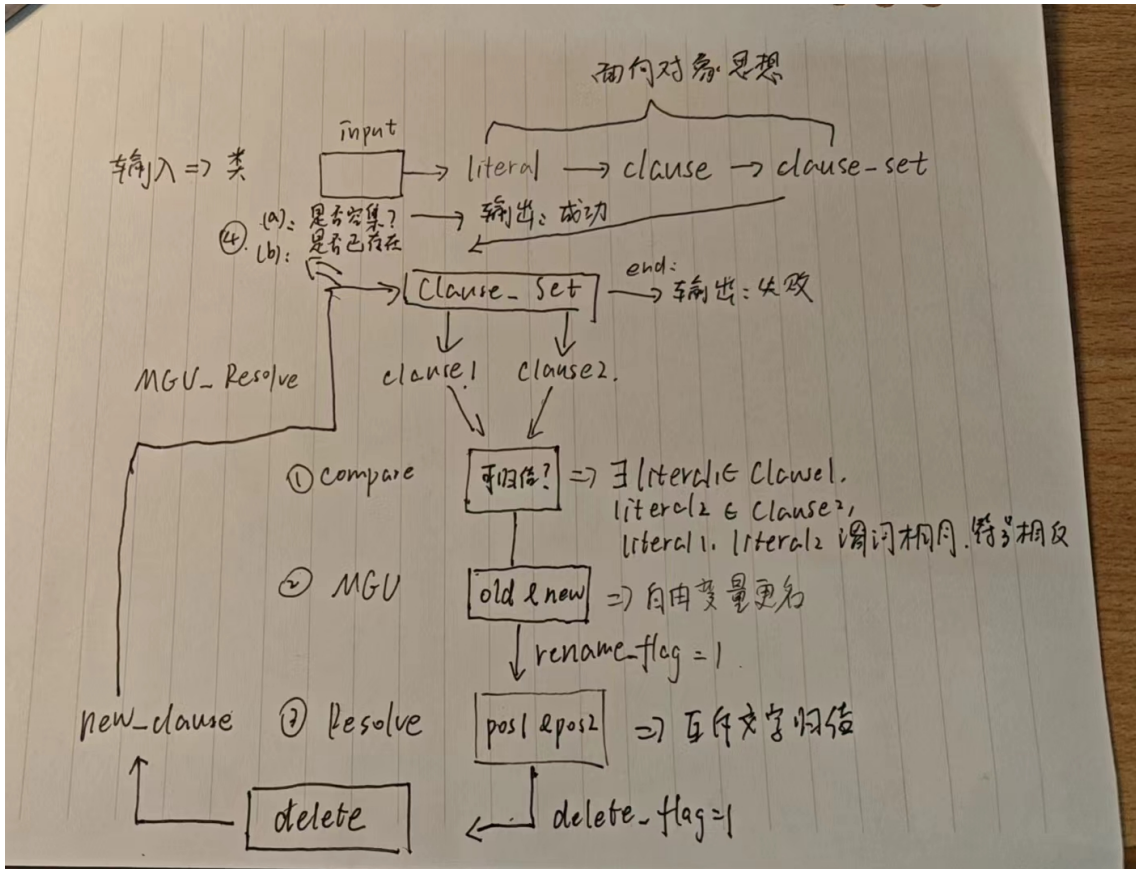 面向对象思想
input
输入 => 类
literal → clause → clause_set
④. (a): 是否空集? → 输出: 成功
(b): 是否已存在
Clause_Set
end:
→ 输出: 失败
MGU_Resolve
clause1
clause2.
① Compare
可归结? => ∃ literal1 ∈ Clause1.
literal2 ∈ Clause2,
literal1, literal2 谓词相同, 符号相反
② MGU
old & new => 自由变量更名
rename_flag = 1.
new_clause
③ Resolve
pos1 & pos2 => 互补文字归结
delete
delete_flag=1